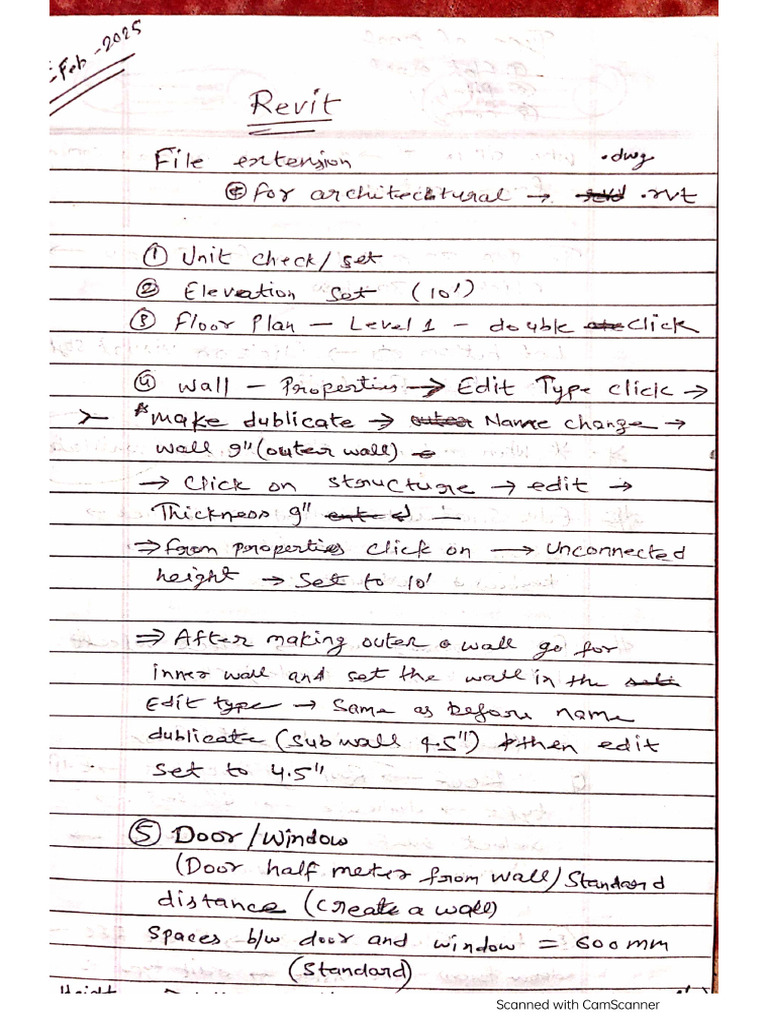 Feb -2025
Revit
File extension .dwg
for architectural → .rvt
① Unit check/set
② Elevation Set (10')
③ Floor Plan — Level 1 — double click
④ Wall — Properties → Edit Type click →
* make dublicate → Name change →
wall 9" (outer wall)
→ Click on structure → edit →
Thickness 9" —
⇒ from properties click on → Unconnected
height → Set to 10'
⇒ After making outer wall go for
inner wall and set the wall in the
Edit type → Same as before name
dublicate (sub wall 4.5") then edit
set to 4.5"
⑤ Door/Window
(Door half meter from wall/Standard
distance (create a wall)
Spaces b/w door and window = 600mm
(Standard)
Height
Scanned with CamScanner